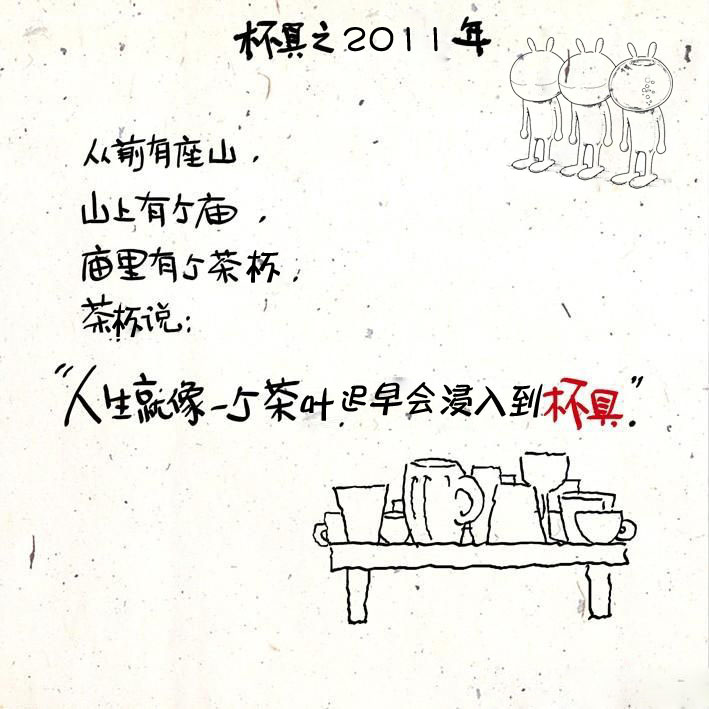 杯具之2011年
从前有座山，
山上有个庙，
庙里有个茶杯，
茶杯说：
“人生就像一个茶叶，迟早会浸入到杯具”。